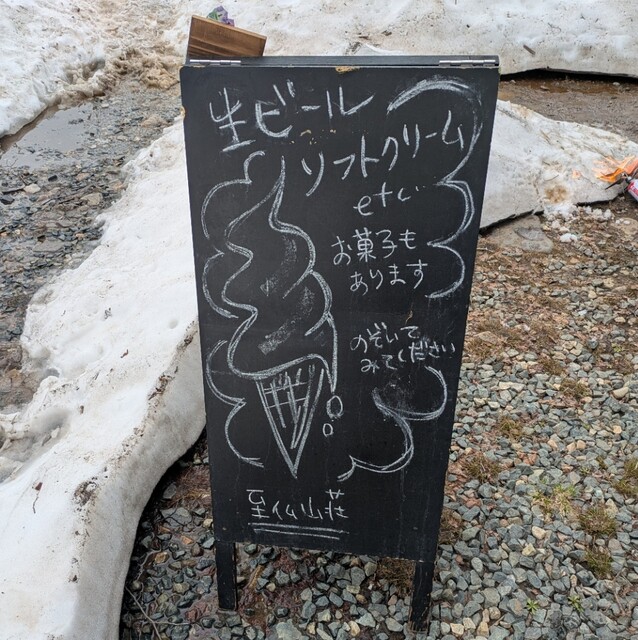 生ビール
ソフトクリーム
etc...
お菓子も
あります
のぞいて
みてください
至仏山荘